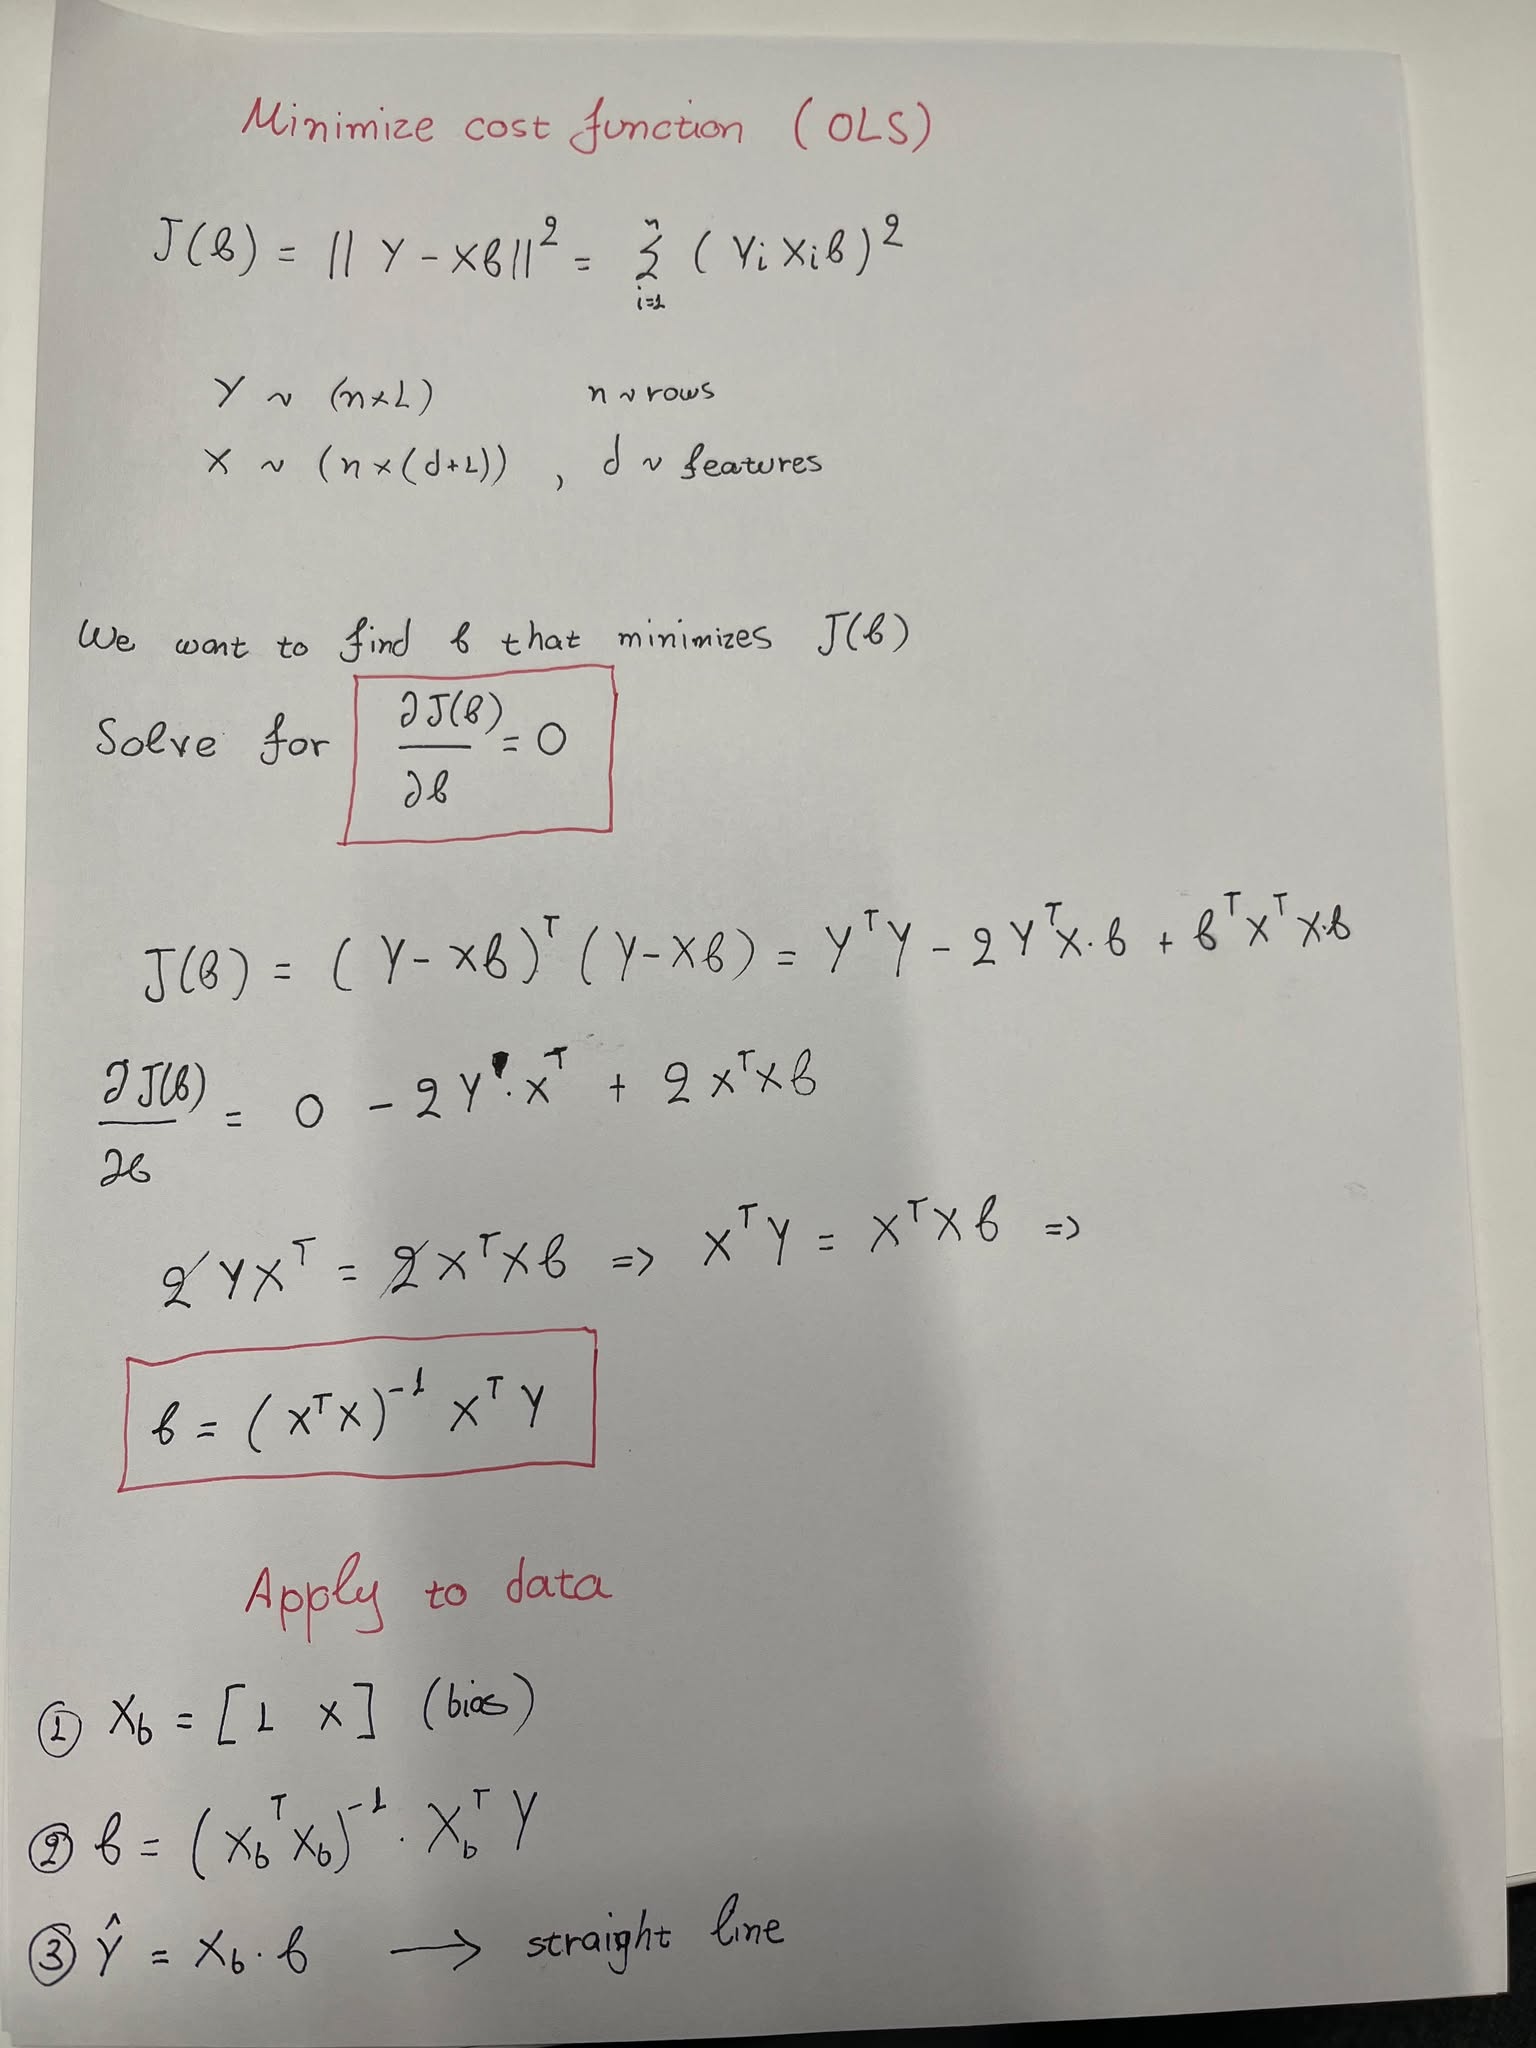 Minimize cost function (OLS)
J(b) = || Y - Xb ||² = Σ_{i=1}^{n} ( Yi Xi b )²
Y ~ (n×1)    n ~ rows
X ~ (n×(d+1)) , d ~ features
We want to find b that minimizes J(b)
Solve for ∂J(b)/∂b = 0
J(b) = ( Y - Xb )ᵀ ( Y - Xb ) = YᵀY - 2YᵀX·b + bᵀXᵀX·b
∂J(b)/∂b = 0 - 2Y·Xᵀ + 2XᵀXb
2YXᵀ = 2XᵀXb => XᵀY = XᵀXb =>
b = (XᵀX)⁻¹ XᵀY
Apply to data
① X_b = [1 X] (bias)
② b = (X_bᵀ X_b)⁻¹ · X_bᵀ Y
③ Ŷ = X_b · b → straight line